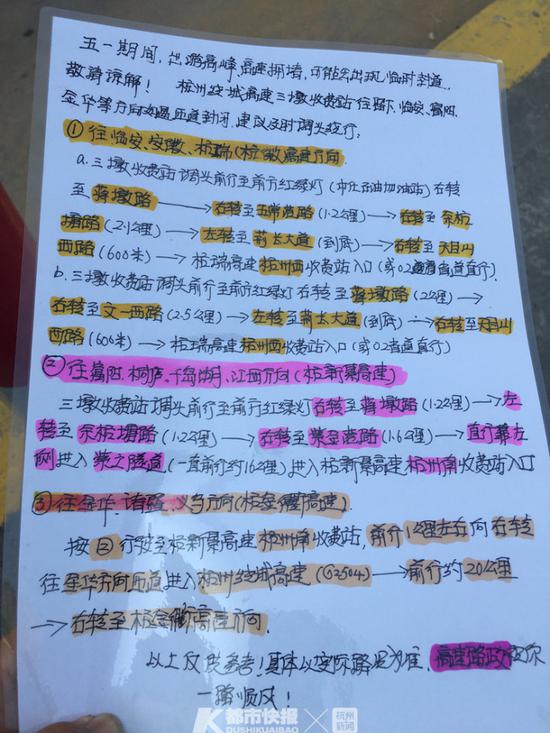 五一期间,出游高峰,高速拥堵,可能会出现临时封道,
敬请谅解! 杭州绕城高速三墩收费站往留下、临安、富阳、
金华等方向如遇匝道封闭,建议及时调头绕行:
①往临安、安徽、杭瑞(杭徽)高速方向
a.三墩收费站调头前行至前方红绿灯(中化石油加油站)右转
至蒋墩路→右转至五常港路(1.2公里)→右转至余杭
塘路(2.1公里)→左转至荆长大道(到底)→右转至天目山
西路(600米)→杭瑞高速杭州西收费站入口(或02省道直行).
b.三墩收费站调头前行至前方红绿灯右转至蒋墩路(2公里)→
右转至文一西路(2.5公里)→左转至荆长大道(到底)→右转至天目山
西路(600米)→杭瑞高速杭州西收费站入口(或02省道直行)
②往富阳、桐庐、千岛湖、江西方向(杭新景高速)
三墩收费站调头前行至前方红绿灯右转至蒋墩路(1.2公里)→左
转至余杭塘路(1.2公里)→右转至紫金港路(1.6公里)→直行靠左
侧进入紫之隧道(一直前行约16公里)进入杭新景高速杭州南收费站入口
③往金华、诸暨、义乌方向(杭金衢高速)
按②行驶至杭新景高速杭州南收费站,前行1公里左右向右转
往金华方向匝道进入杭州绕城高速(G2504)→前行约20公里
→右转至杭金衢高速方向.
以上仅供参考!具体以实际路况为准,高速路政祝你
一路顺风!
都市快报
DUSHIKUAIBAO
×
杭州
新闻